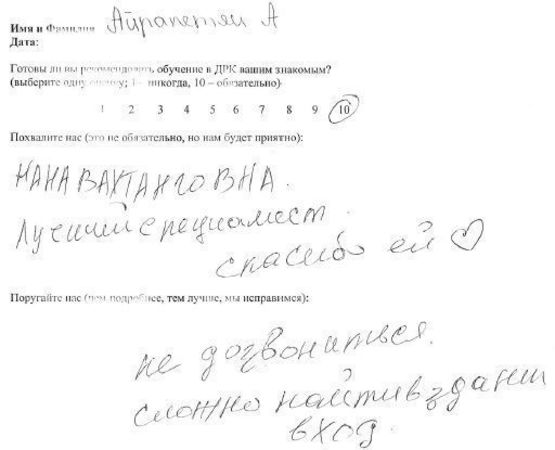 Имя и Фамилия Айрапетян А
Дата:
Готовы ли вы рекомендовать обучение в ДРК вашим знакомым?
(выберите одну оценку; 1 – никогда, 10 – обязательно)
1 2 3 4 5 6 7 8 9 10
Похвалите нас (это не обязательно, но нам будет приятно):
НАНА ВАХТАНГОВНА.
Лучший специалист.
спасибо ей ♡
Поругайте нас (чем подробнее, тем лучше, мы исправимся):
не дозвониться.
сложно найти в здании
вход.